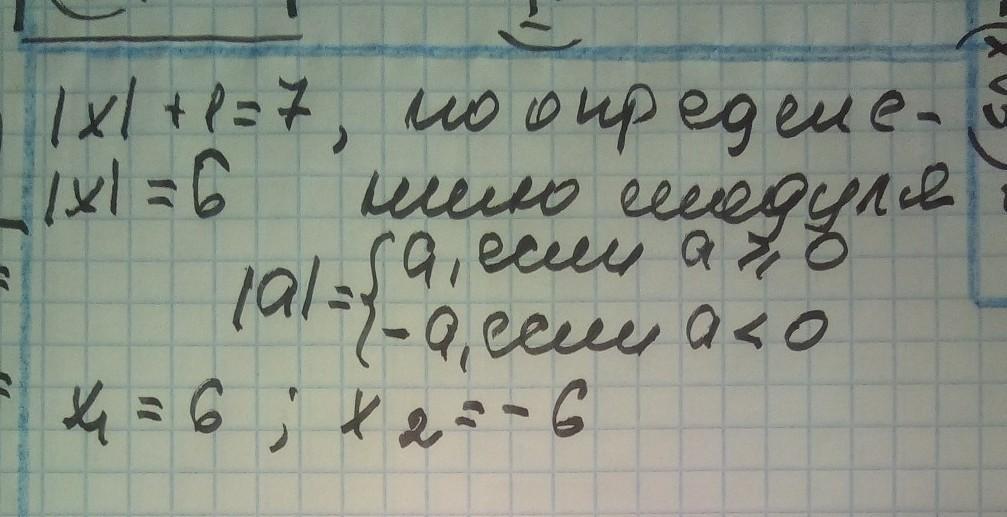 |x| + 1 = 7, по определе-
|x| = 6 нию модуля
|a| = { a, если a ⩾ 0
-a, если a < 0
x₁ = 6 ; x₂ = - 6